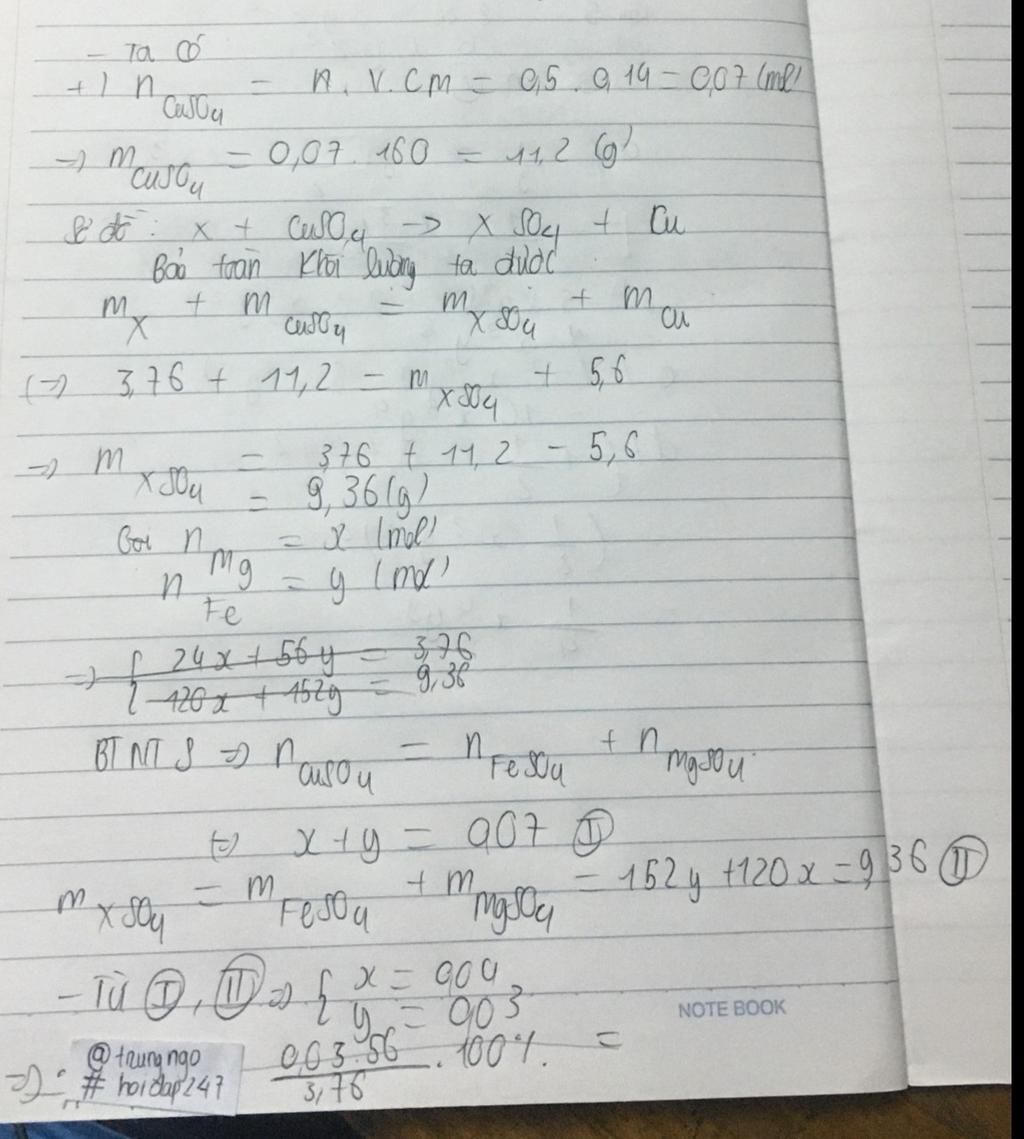 - Ta có
+) n CuSO4 = n. V. CM = 0,5 . 0,14 = 0,07 (mol)
=> m CuSO4 = 0,07 . 160 = 11,2 (g)
Sơ đồ : X + CuSO4 -> X SO4 + Cu
Bảo toàn khối lượng ta được
m X + m CuSO4 = m X SO4 + m Cu
(=) 3,76 + 11,2 = m X SO4 + 5,6
=> m X SO4 = 3,76 + 11,2 - 5,6
= 9,36 (g)
Gọi n Mg = x (mol)
n Fe = y (mol)
=> { 24x + 56y = 3,76
120x + 152y = 9,36
BTNT S => n CuSO4 = n FeSO4 + n MgSO4.
(=) x + y = 0,07 (I)
m X SO4 = m FeSO4 + m MgSO4 = 152y + 120x = 9,36 (II)
- Từ (I), (II) => { x = 0,04
y = 0,03
=> : 0,03.56 / 3,76 . 100% =
@trungngo
# hoidap247
NOTE BOOK